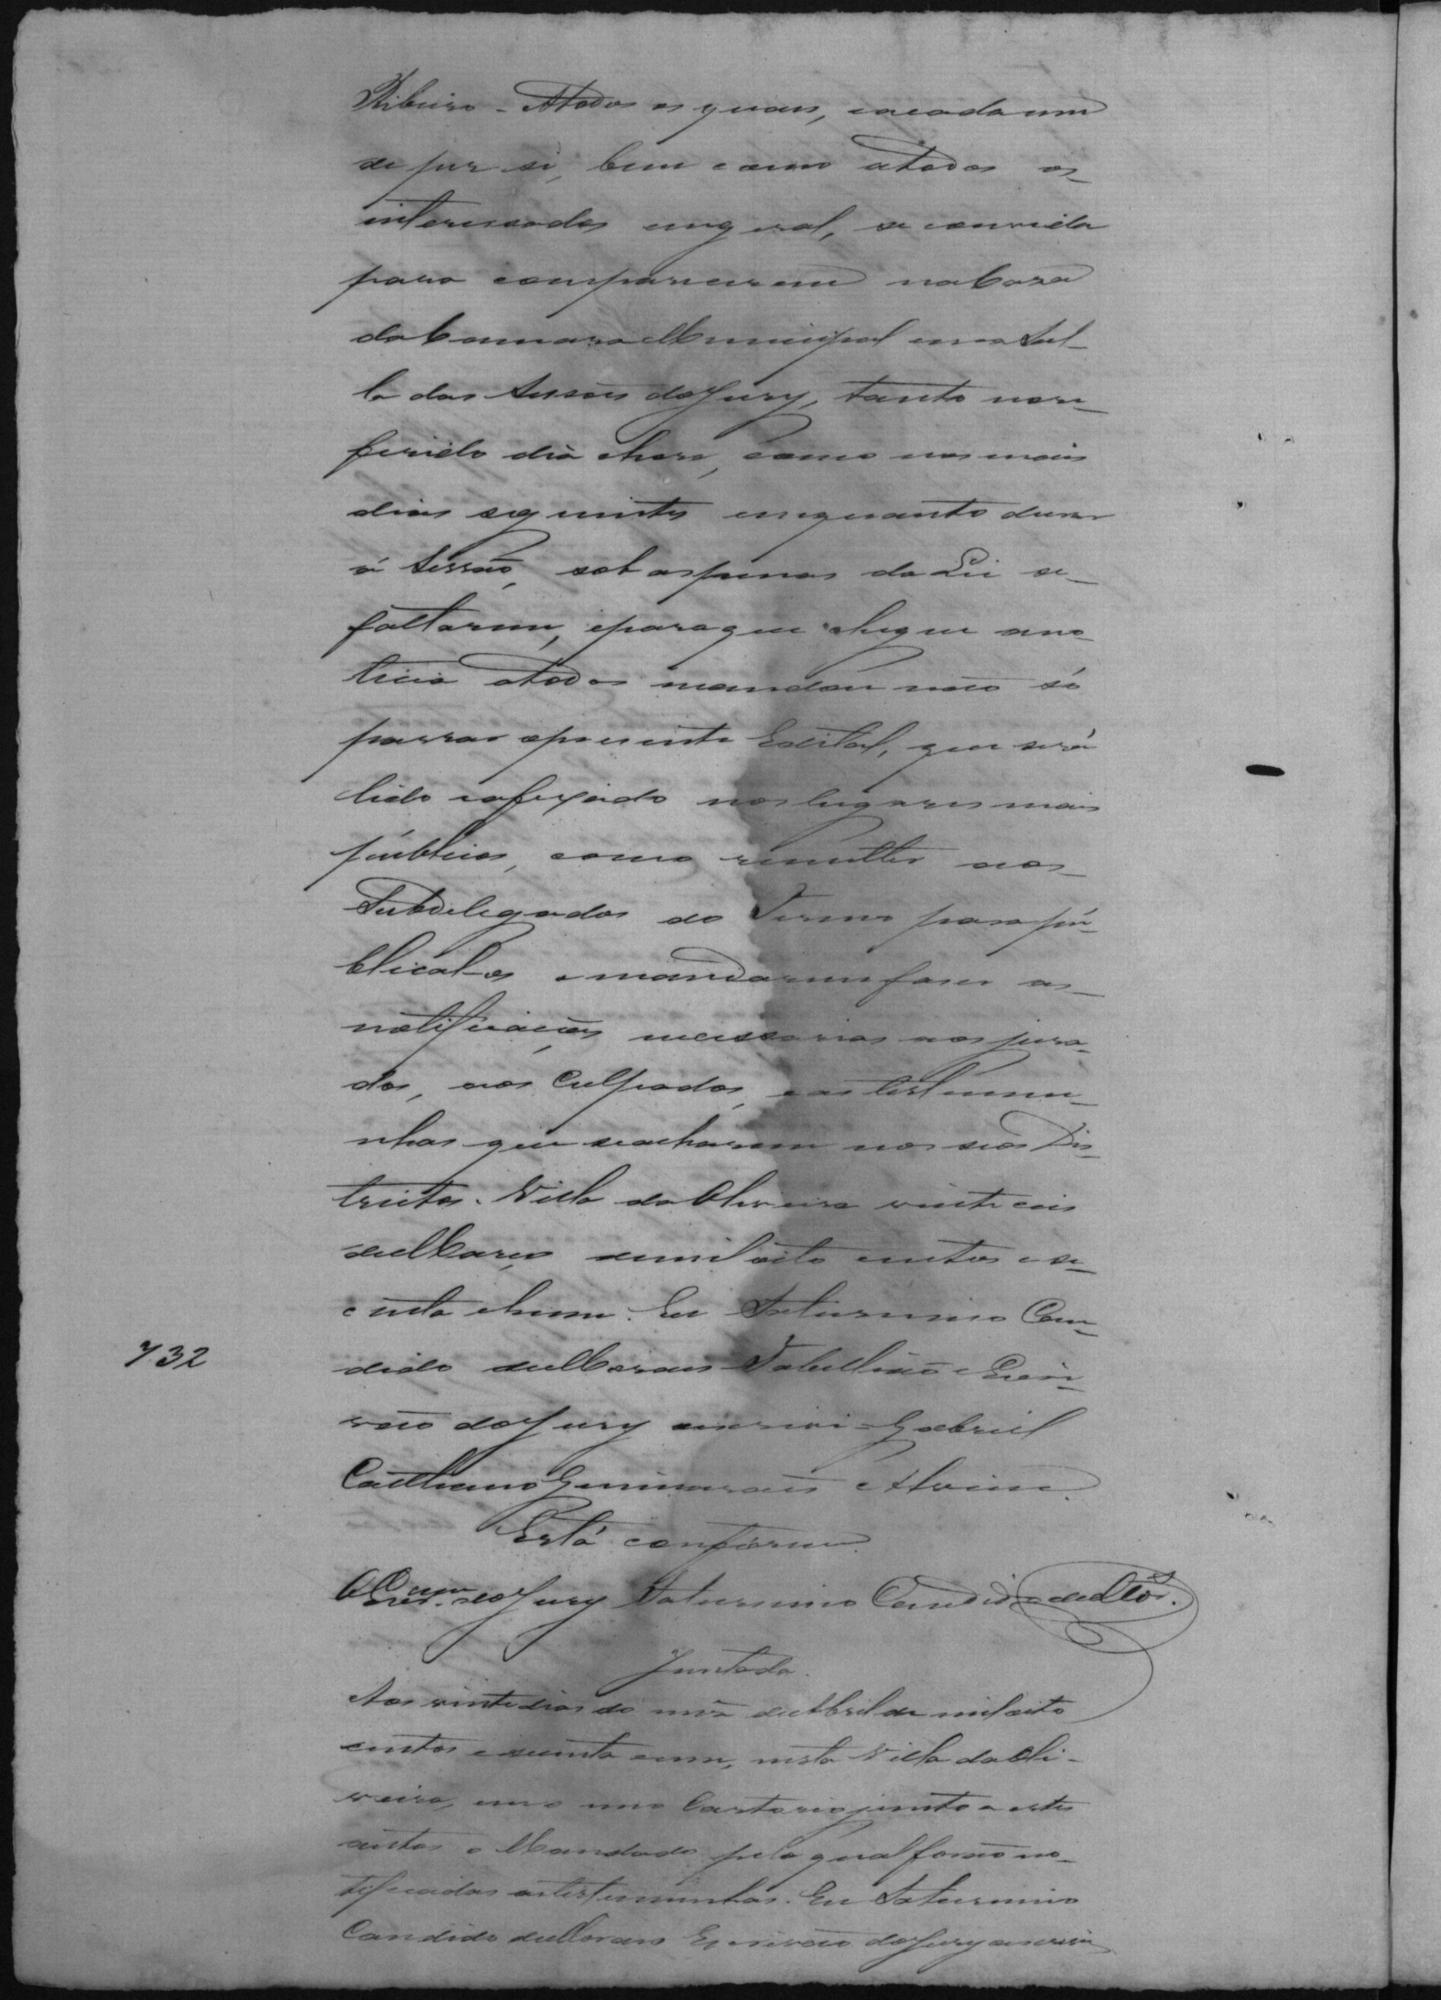 Ribeiro - Atodos os quaes, ecada um
de per si, bem como atodos os
interessados emgeral, se convida
para comparecerem na Casa
da Camara Municipal em a Sal-
la das Sessoes do Jury, tanto no re-
ferido dia ehora, como nos mais
dias seguintes emquanto durar
á Sessão, sob as penas da Lei se
faltarem, epara que chegue ano-
ticia atodos mandou não só
passar opresente Edital, que será
lido eafixado nos lugares mais
públicos, como remetter aos
Subdelegados do Termo para pú-
blical-os emandarem faser as
notificações necessarias aos jura-
dos, aos Culpados, eas testemu-
nhas que seacharem nos seos Dis-
trictos. Villa da Oliveira vinte eseis
de Março demil oito centos ese-
centa ehum. Eu Saturnino Can-
732
dido de Moraes Tabellião e Escri-
vão do Jury escrevi - Gabriel
Caethano Guimaraes eAlvim.
Está conforme.
O Escr.am do Jury Saturnino Candido de Mos.
Juntada.
Aos vinte dias do mez de Abril de mil oito
centos e secenta eum, nesta Villa da Oli-
veira, em o meo Cartorio junto a estes
autos o Mandado pelo qual forão no-
tificadas as testemunhas. Eu Saturnino
Candido de Moraes Escrivão do Jury escrevi